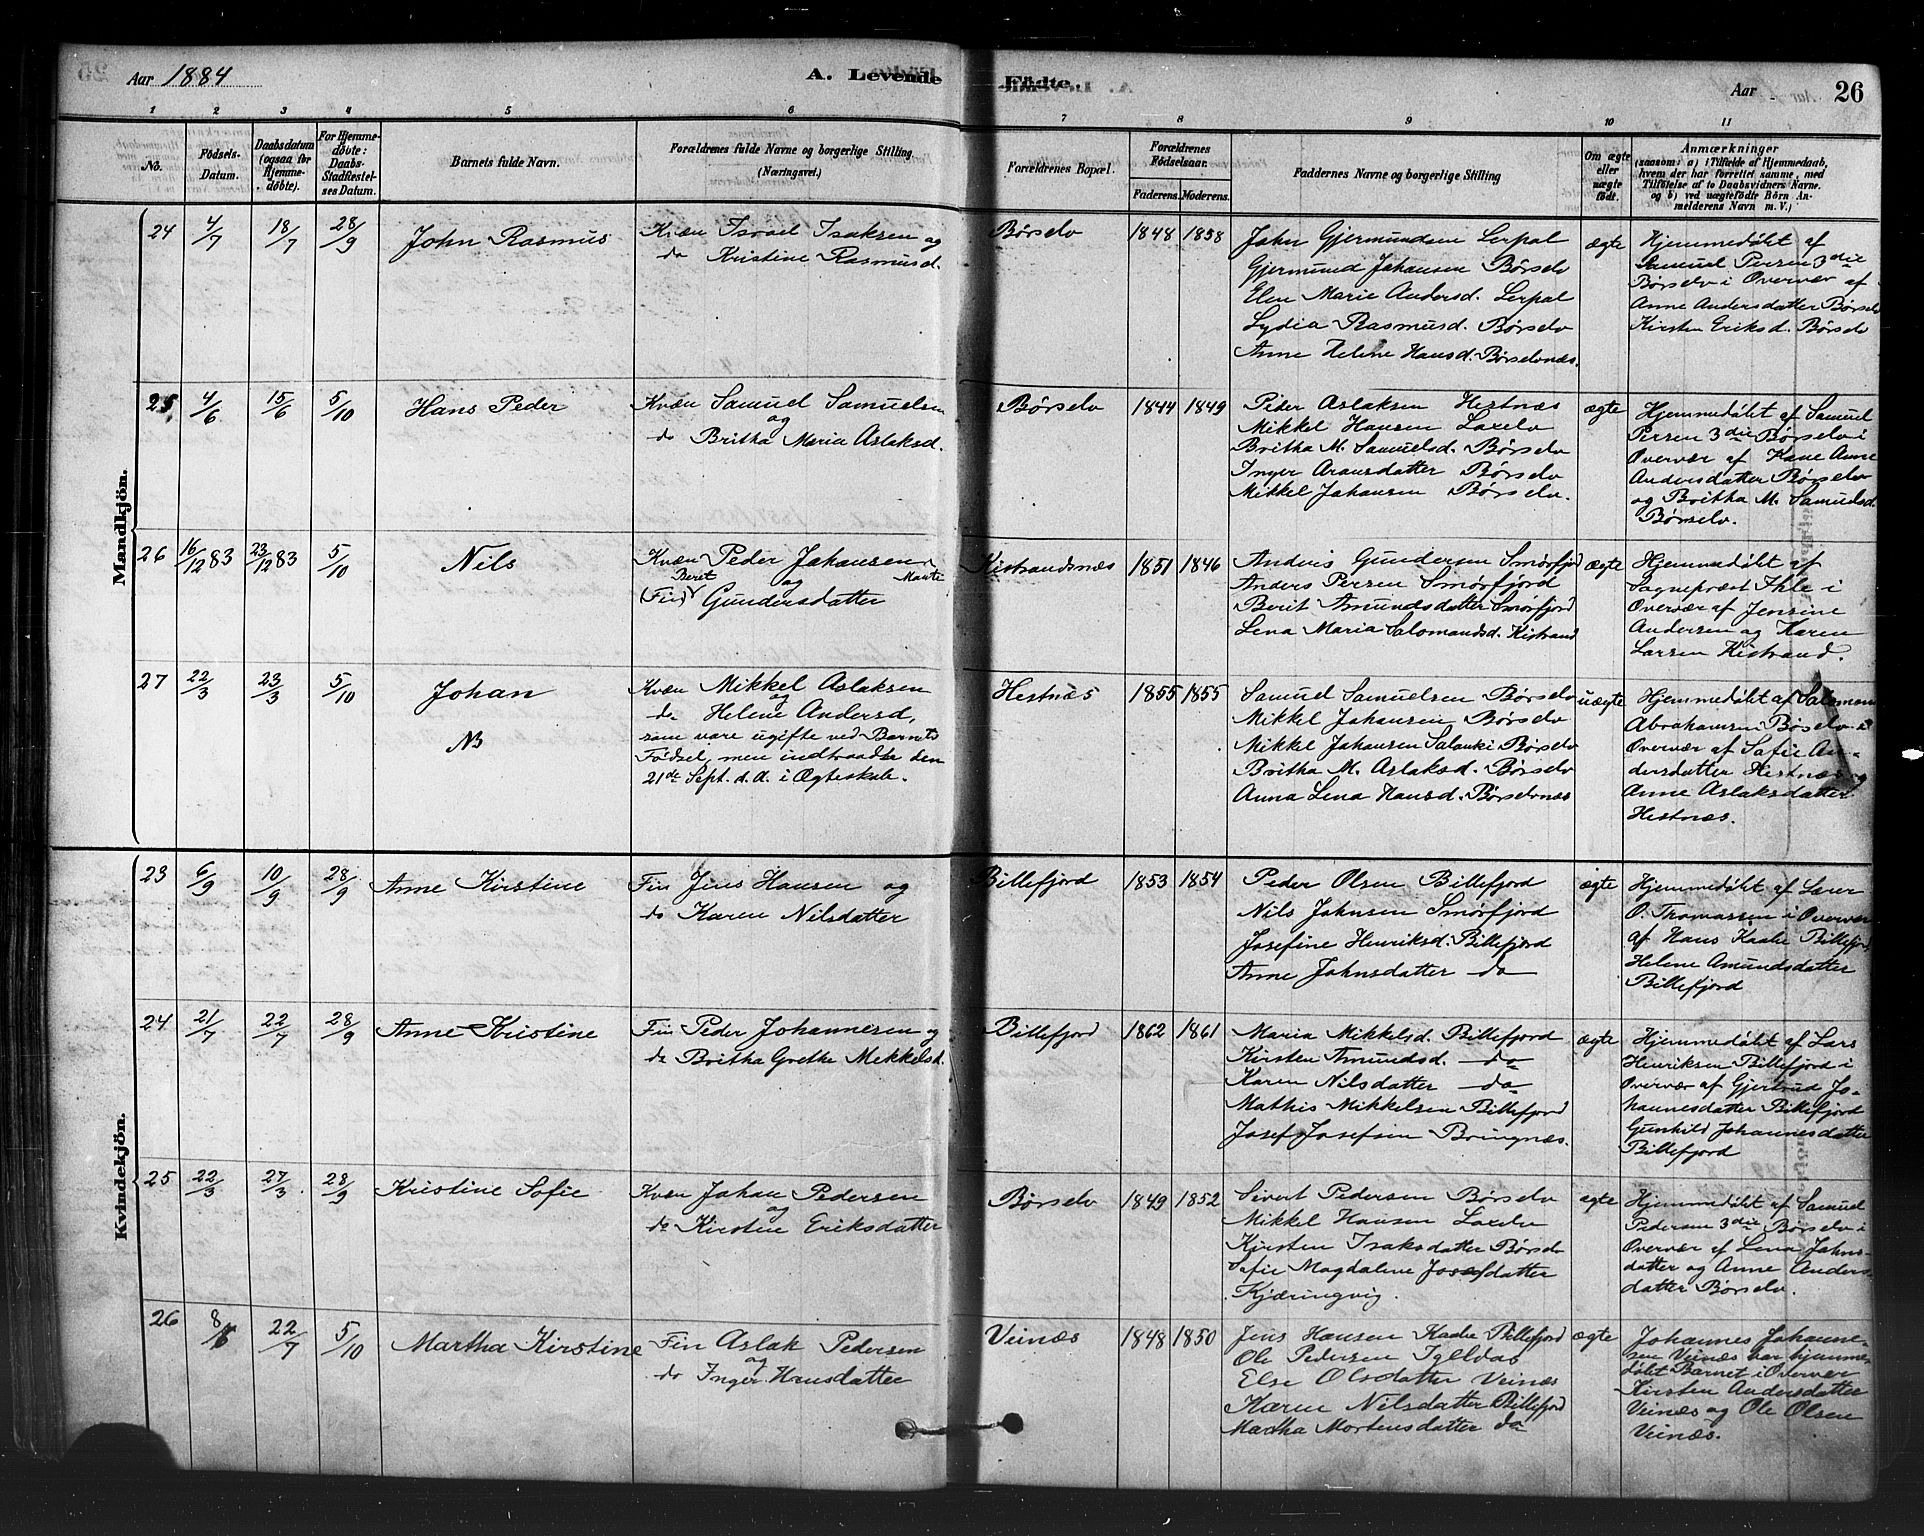 Aar 1884
A. Levende Födte.
Aar
26
1 2 3 4 5 6 7 8 9 10 11
No.
Födsels-
Datum.
Daabsdatum
(ogsaa for
Hjemme-
döbte).
For Hjemme-
döbte:
Daabs-
Stadfæstel-
ses Datum.
Barnets fulde Navn.
Forældrenes fulde Navne og borgerlige Stilling
(Næringsvei.)
Forældrenes Bopæl.
Forældrenes
Födselsaar.
Faderens. Moderens.
Faddernes Navne og borgerlige Stilling
Om ægte
eller
uægte
födt.
Anmærkninger
(saasom: a) i Tilfælde af Hjemmedaab,
hvem der har forrettet samme, med
Tilföielse af to Daabsvidners Navne,
og b) ved uægtefödte Börn An-
melderens Navn m. V.)
Mandkjön.
24 4/7 18/7 28/9 John Rasmus
Kvæn Israel Isaksen og
do Kristine Rasmusd.
Børselv 1848 1858
John Gjermundsen Lerpal
Gjermund Johansen Børselv
Elen Marie Andersd. Lerpal
Lydia Rasmusd. Børselv
Anne Helene Hansd. Børselvnæs.
ægte
Hjemmedøbt af
Samuel Persen 3die
Børselv i Overvær af
Anne Andersdatter Børselv
Kirsten Eriksd. Børselv
25 4/6 15/6 5/10 Hans Peder
Kvæn Samuel Samuelsen
og
do Britha Maria Aslaksd.
Børselv 1844 1849
Peder Aslaksen Hestnæs
Mikkel Hansen Laxelv
Britha M. Samuelsd. Børselv
Inger Aransdatter Børselv
Mikkel Johansen Børselv.
ægte
Hjemmedøbt af Samuel
Persen 3die Børselv i
Overvær af Kone Anne
Andersdatter Børselv
og Britha M. Samuelsd.
Børselv.
26 16/12 83 23/12 83 5/10 Nils
Kvæn Peder Johansen
Beret og Marte
(Fin) Gundersdatter
Kistrandsnæs 1851 1846
Anders Gundersen Smørfjord
Anders Persen Smørfjord
Berit Amundsdatter Smørfjord
Lena Maria Salomonsd. Kistrand
ægte
Hjemmedøbt af
Sognepræst Ihle i
Overvær af Jensine
Andersen og Karen
Larsen Kistrand.
27 22/3 23/3 5/10 Johan
NB
Kvæn Mikkel Aslaksen
og
do Helene Andersd,
som vare ugifte ved Barnets
Fødsel, men indtraadte den
21de Sept. d. a. i Ægteskab.
Hestnæs 1855 1855
Samuel Samuelsen Børselv
Mikkel Johansen Børselv
Mikkel Johansen Salanki Børselv
Britha M. Aslaksd. Børselv
Anna Lena Hansd. Børselvnæs
uægte
Hjemmedøbt af Salomon
Abrahamsen Børselv i
Overvær af Sofie An-
dersdatter Hestnæs og
Anne Aslaksdatter
Hestnæs.
Kvindekjön.
23 6/9 10/9 28/9 Anne Kirstine
Fin Jens Hansen og
do Karen Nilsdatter
Billefjord 1853 1854
Peder Olsen Billefjord
Nils Johnsen Smørfjord
Josefine Henriksd. Billefjord
Anne Johnsdatter do
ægte
Hjemmedøbt af Lærer
O. Thomassen i Overvær
af Hans Kaabe Billefjord
Helene Amundsdatter
Billefjord
24 21/7 22/7 28/9 Anne Kristine
Fin Peder Johannesen og
do Britha Grethe Mekkelsd.
Billefjord 1862 1861
Maria Mikkelsd. Billefjord
Kirsten Amundsd. do
Karen Nilsdatter do
Mathis Mikkelsen Billefjord
Josef Josefsen Bringnæs.
ægte
Hjemmedøbt af Lars
Henriksen Billefjord i
Overvær af Gjertrud Jo-
hannesdatter Billefjord
Gunhild Johannesdatter
Billefjord
25 22/3 27/3 28/9 Kristine Sofie
Kvæn Johan Pedersen
og
do Kirsten Eriksdatter
Børselv 1849 1852
Sivert Pedersen Børselv
Mikkel Hansen Laxelv
Kirsten Isaksdatter Børselv
Sofie Magdalene Josefdatter
Kjæringvig.
ægte
Hjemmedøbt af Samuel
Pedersen 3die Børselv i
Overvær af Lena Johns-
datter og Anne Anders-
datter Børselv.
26 8/6 22/7 5/10 Martha Kirstine
Fin Aslak Pedersen
og
do Inger Hansdatter
Veinæs 1848 1850
Jens Hansen Kaabe Billefjord
Ole Pedersen Igeldas
Else Olsdatter Veinæs
Karen Nilsdatter Billefjord
Martha Mortensdatter do
ægte
Johannes Johanne-
sen Veinæs har hjemme-
døbt Barnet i Overvær
Kirsten Andersdatter
Veinæs og Ole Olsen
Veinæs.